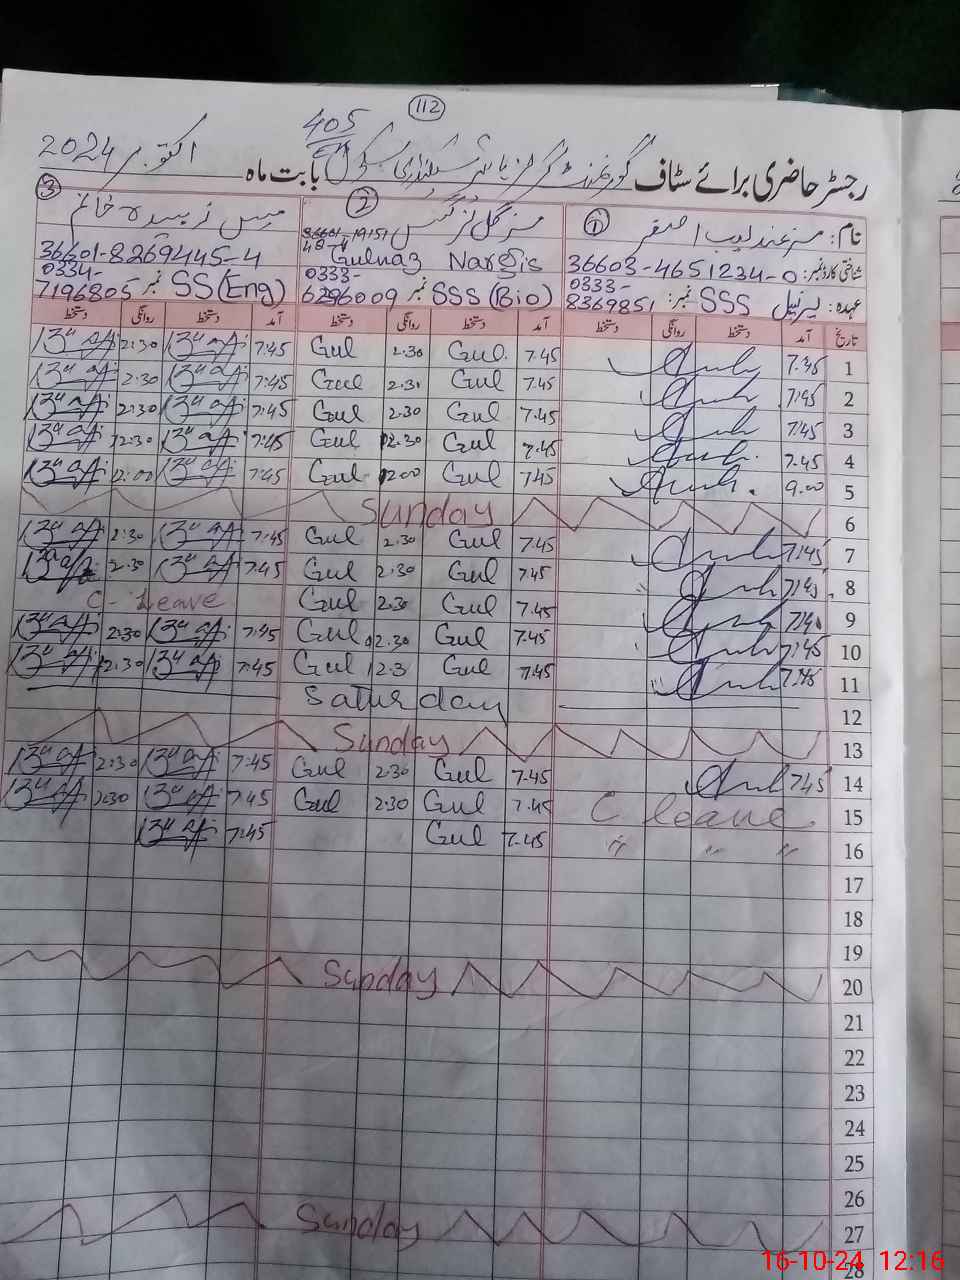 112
405
رجسٹر حاضری برائے سٹاف گورنمنٹ گرلز ہائر سیکنڈری سکول بابت ماہ اکتوبر 2024
1 2 3
نام: مسز عندلیب اصغر مسز گل نرگس مس زبیدہ خانم
شناختی کارڈ نمبر: 36603-4651234-0 Gulnaz Nargis 36601-8269445-4
عہدہ: پرنسپل SSS نمبر: 0333-8369851 SSS (Bio) نمبر 0333-6296009 SS (Eng) نمبر 0334-7196805
تاریخ آمد دستخط روانگی دستخط آمد دستخط روانگی دستخط آمد دستخط روانگی دستخط
1 7.45 7.45 Gul 2.30 Gul 7.45 2:30
2 7.45 7.45 Gul 2.30 Gul 7.45 2:30
3 7.45 7.45 Gul 2.30 Gul 7.45 2:30
4 7.45 7.45 Gul 12.30 Gul 7.45 12:30
5 9.00 7.45 Gul 12.00 Gul 7.45 12:00
6 Sunday
7 7.45 7.45 Gul 2.30 Gul 7.45 2:30
8 7.45 7.45 Gul 2.30 Gul 7.45 2.30
9 7.45 Gul 2.30 Gul C-Leave
10 7.45 7.45 Gul 2.30 Gul 7.45 2:30
11 7.45 7.45 Gul 12.3 Gul 7.45 12.30
12 Saturday
13 Sunday
14 7.45 7.45 Gul 2.30 Gul 7.45 2:30
15 C leave 7.45 Gul 2.30 Gul 7.45 2.30
16 〃 〃 〃 7.45 Gul 7.45
17
18
19
20 Sunday
21
22
23
24
25
26
27 Sunday
28
16-10-24 12:16